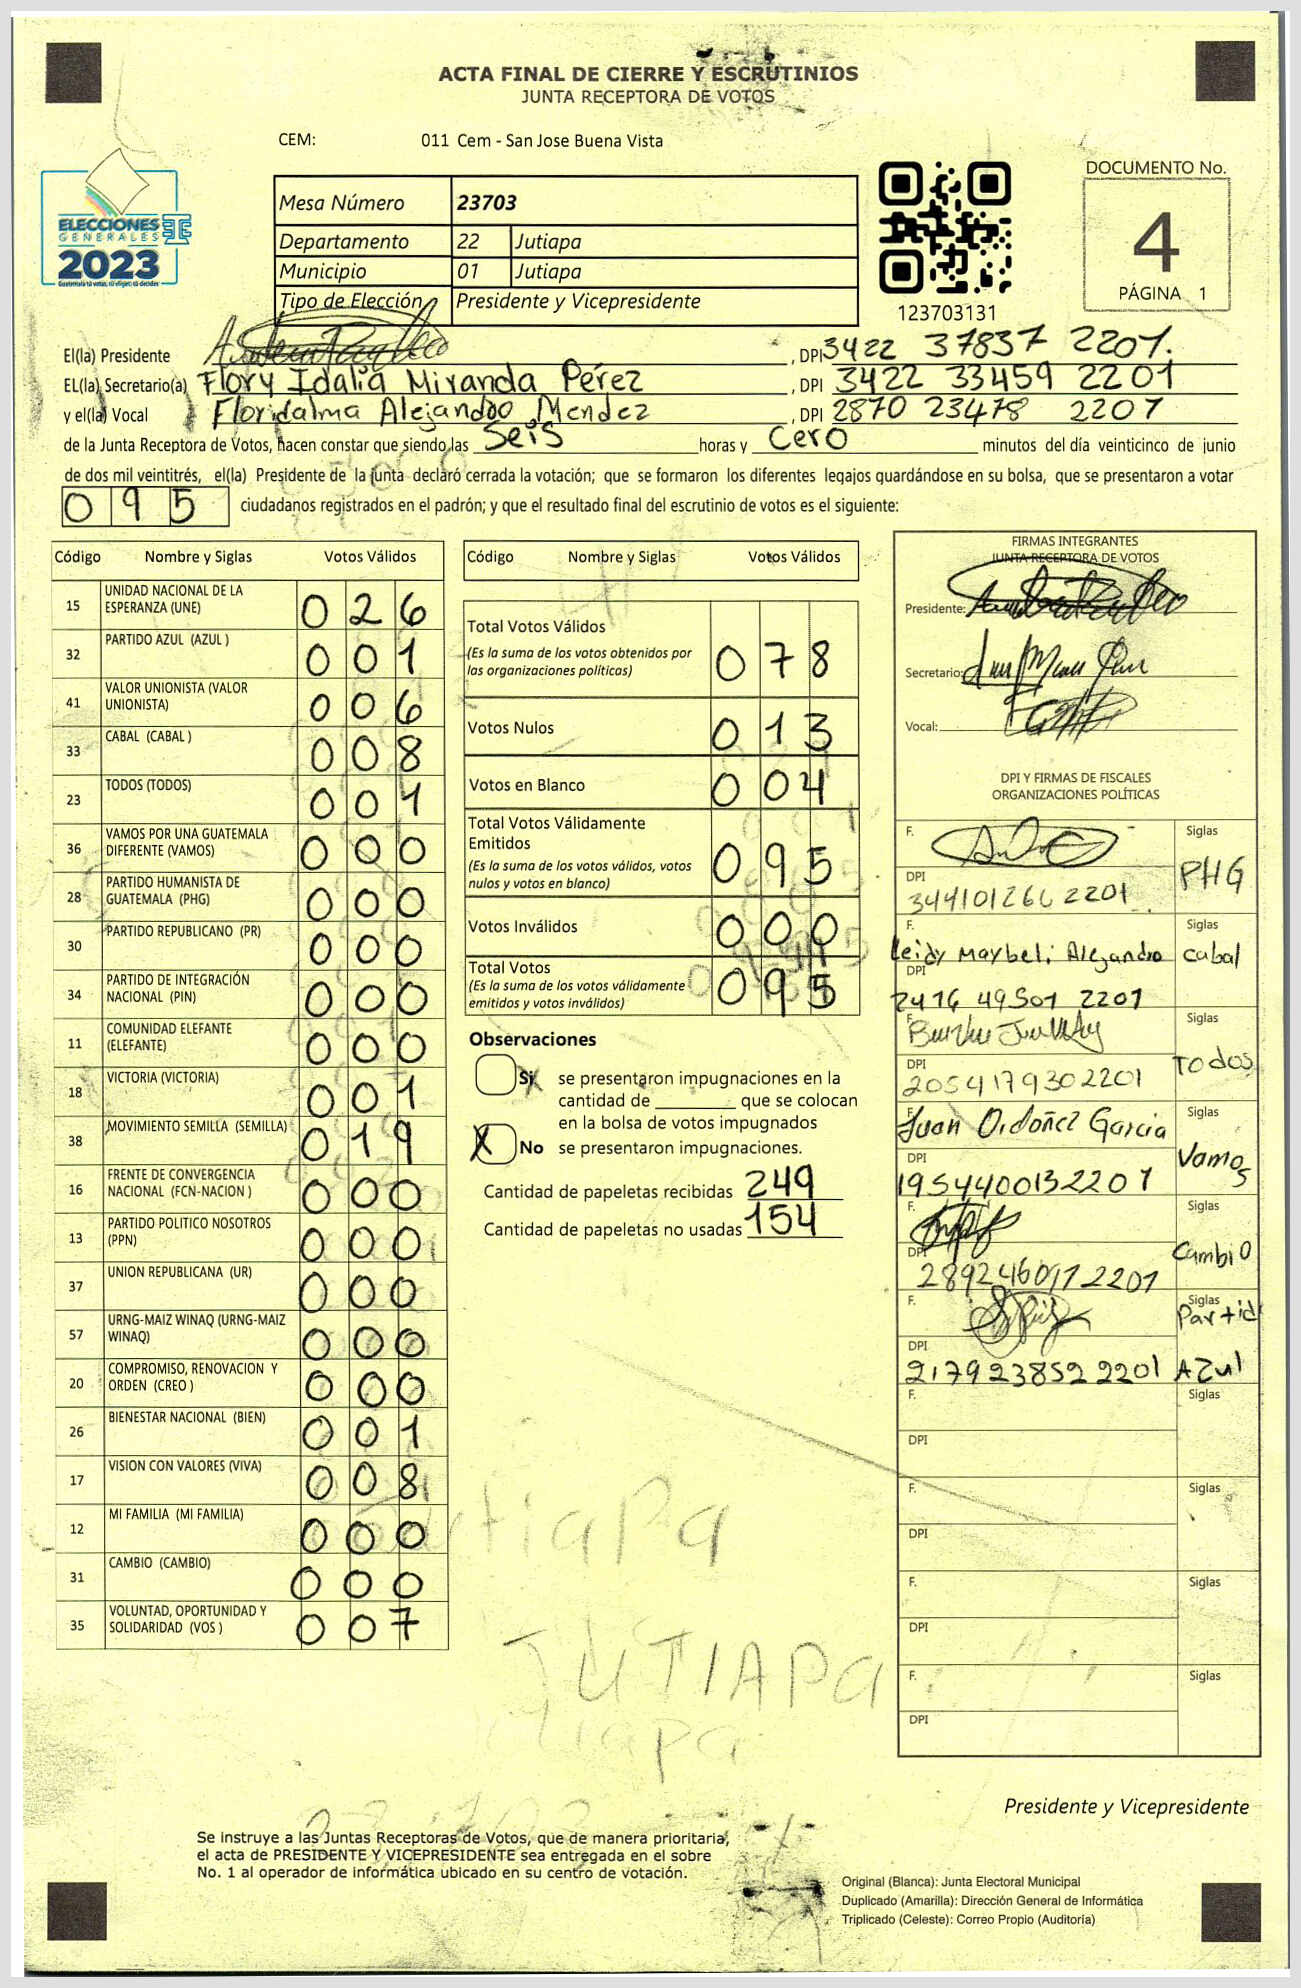 ACTA FINAL DE CIERRE Y ESCRUTINIOS
JUNTA RECEPTORA DE VOTOS
CEM: 011 Cem - San Jose Buena Vista
ELECCIONES
GENERALES
2023
Guatemala tú votas, tú eliges, tú decides
Mesa Número 23703
Departamento 22 Jutiapa
Municipio 01 Jutiapa
Tipo de Elección Presidente y Vicepresidente
123703131
DOCUMENTO No.
4
PÁGINA 1
El(la) Presidente , DPI 3422 37837 2201.
EL(la) Secretario(a) Flory Idalia Miranda Pérez , DPI 3422 33459 2201
y el(la) Vocal Floridalma Alejandro Mendez , DPI 2870 23478 2201
de la Junta Receptora de Votos, hacen constar que siendo las Seis horas y Cero minutos del día veinticinco de junio
de dos mil veintitrés, el(la) Presidente de la junta declaró cerrada la votación; que se formaron los diferentes legajos guardándose en su bolsa, que se presentaron a votar
095 ciudadanos registrados en el padrón; y que el resultado final del escrutinio de votos es el siguiente:
Código Nombre y Siglas Votos Válidos
15 UNIDAD NACIONAL DE LA ESPERANZA (UNE) 026
32 PARTIDO AZUL (AZUL ) 001
41 VALOR UNIONISTA (VALOR UNIONISTA) 006
33 CABAL (CABAL ) 008
23 TODOS (TODOS) 001
36 VAMOS POR UNA GUATEMALA DIFERENTE (VAMOS) 000
28 PARTIDO HUMANISTA DE GUATEMALA (PHG) 000
30 PARTIDO REPUBLICANO (PR) 000
34 PARTIDO DE INTEGRACIÓN NACIONAL (PIN) 000
11 COMUNIDAD ELEFANTE (ELEFANTE) 000
18 VICTORIA (VICTORIA) 001
38 MOVIMIENTO SEMILLA (SEMILLA) 019
16 FRENTE DE CONVERGENCIA NACIONAL (FCN-NACION ) 000
13 PARTIDO POLITICO NOSOTROS (PPN) 000
37 UNION REPUBLICANA (UR) 000
57 URNG-MAIZ WINAQ (URNG-MAIZ WINAQ) 000
20 COMPROMISO, RENOVACION Y ORDEN (CREO ) 000
26 BIENESTAR NACIONAL (BIEN) 001
17 VISION CON VALORES (VIVA) 008
12 MI FAMILIA (MI FAMILIA) 000
31 CAMBIO (CAMBIO) 000
35 VOLUNTAD, OPORTUNIDAD Y SOLIDARIDAD (VOS ) 007
Código Nombre y Siglas Votos Válidos
Total Votos Válidos 078
(Es la suma de los votos obtenidos por
las organizaciones políticas)
Votos Nulos 013
Votos en Blanco 004
Total Votos Válidamente
Emitidos 095
(Es la suma de los votos válidos, votos
nulos y votos en blanco)
Votos Inválidos 000
Total Votos 095
(Es la suma de los votos válidamente
emitidos y votos inválidos)
Observaciones
Si se presentaron impugnaciones en la
cantidad de ________ que se colocan
en la bolsa de votos impugnados
X No se presentaron impugnaciones.
Cantidad de papeletas recibidas 249
Cantidad de papeletas no usadas 154
FIRMAS INTEGRANTES
JUNTA RECEPTORA DE VOTOS
Presidente:
Secretario:
Vocal:
DPI Y FIRMAS DE FISCALES
ORGANIZACIONES POLÍTICAS
F. Siglas
PHG
DPI
F. Siglas
Leidy Maybeli Alejandro Cabal
DPI
2476 49501 2201
F. Siglas
Todos
DPI
2054179302201
F. Siglas
Juan Ordoñez Garcia Vamos
DPI
1954400132201
F. Siglas
Cambio
DPI
2892460172201
F. Siglas
Partid
DPI
2179238522201 AZul
F. Siglas
DPI
F. Siglas
DPI
F. Siglas
DPI
F. Siglas
DPI
Jutiapa
JUTIAPa
Jutiapa
Presidente y Vicepresidente
Se instruye a las Juntas Receptoras de Votos, que de manera prioritaria,
el acta de PRESIDENTE Y VICEPRESIDENTE sea entregada en el sobre
No. 1 al operador de informática ubicado en su centro de votación.
Original (Blanca): Junta Electoral Municipal
Duplicado (Amarilla): Dirección General de Informática
Triplicado (Celeste): Correo Propio (Auditoría)